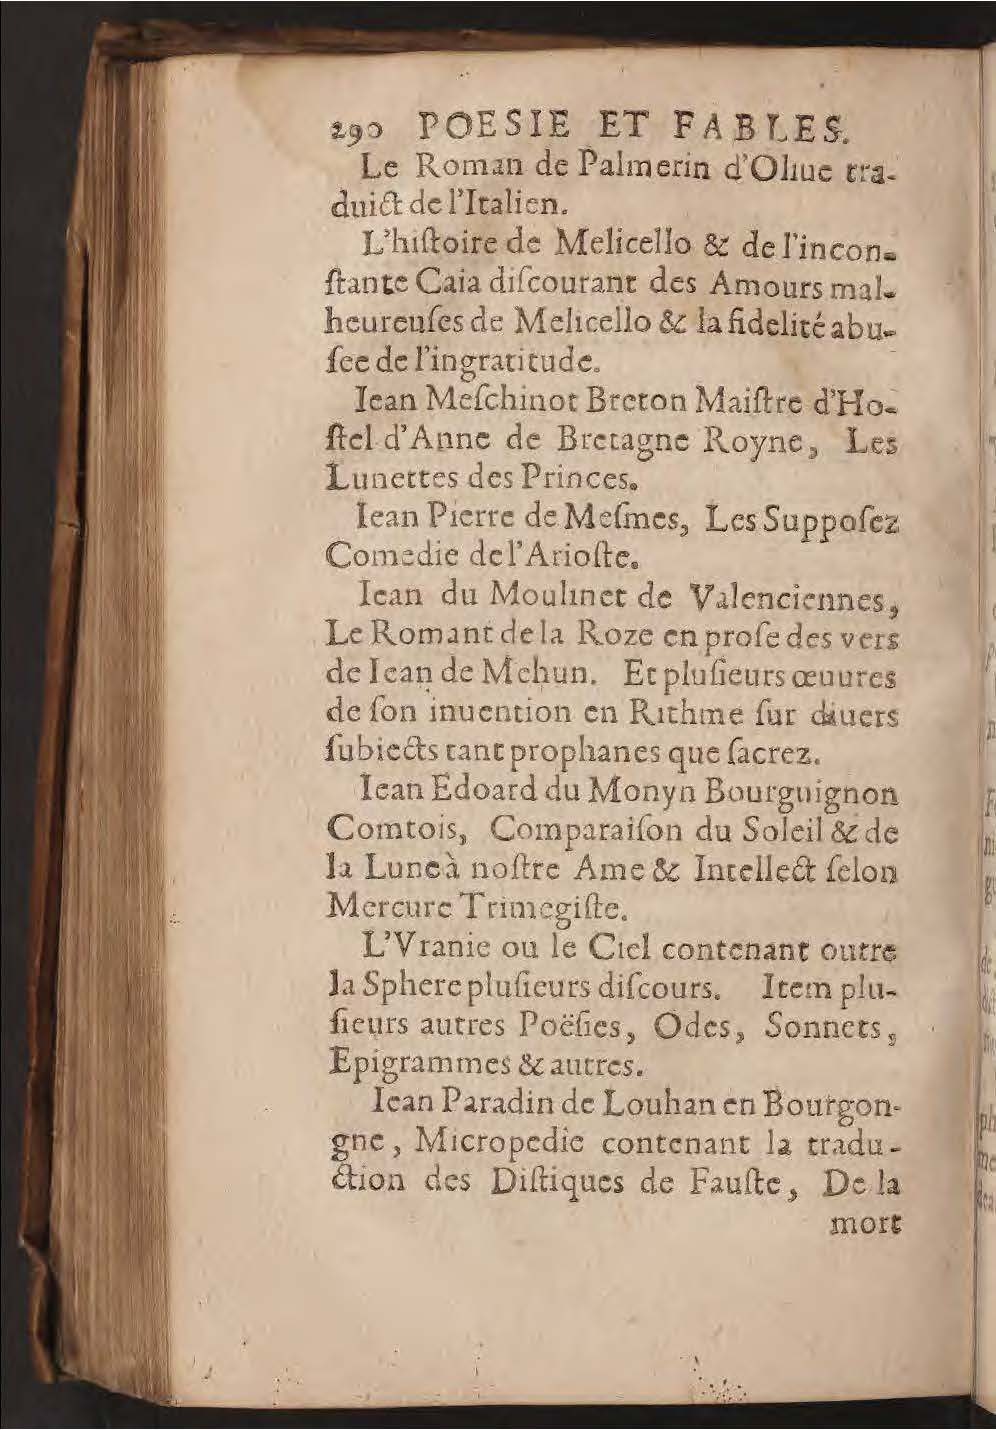 290 POESIE ET FABLES.
Le Roman de Palmerin d'Oliue tra-
duict de l'Italien.
L'hiſtoire de Melicello & de l'incon-
ſtante Caia diſcourant des Amours mal-
heureuſes de Melicello & la fidelité abu-
ſee de l'ingratitude.
Iean Meſchinot Breton Maiſtre d'Ho-
ſtel d'Anne de Bretagne Royne, Les
Lunettes des Princes.
Iean Pierre de Meſmes, Les Suppoſez
Comedie de l'Arioſte.
Iean du Moulinet de Valenciennes,
Le Romant de la Roze en proſe des vers
de Iean de Mehun. Et pluſieurs œuures
de ſon inuention en Rithme ſur diuers
ſubiects tant prophanes que ſacrez.
Iean Edoard du Monyn Bourguignon
Comtois, Comparaiſon du Soleil & de
la Lune à noſtre Ame & Intellect ſelon
Mercure Trimegiſte.
L'Vranie ou le Ciel contenant outre
la Sphere pluſieurs diſcours. Item plu-
ſieurs autres Poëſies, Odes, Sonnets,
Epigrammes & autres.
Iean Paradin de Louhan en Bourgon-
gne, Micropedie contenant la tradu-
ction des Diſtiques de Fauſte, De la
mort